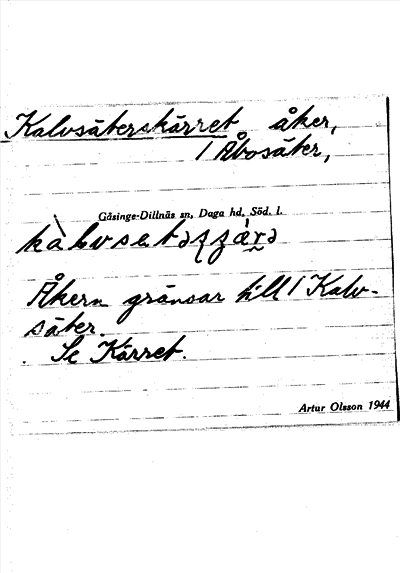 Kalvsäterskärret åker,
1 Åbosäter,
Gåsinge-Dillnäs sn, Daga hd, Söd. l.
Åkern gränsar till 1 Kalv-
säter.
Se Kärret.
Artur Olsson 1944